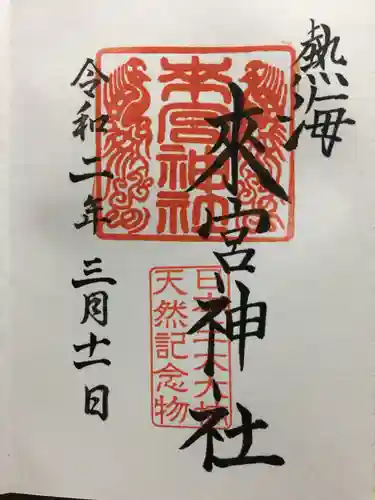 熱海
來宮神社
来宮神社
日本三大大楠
天然記念物
令和二年三月十一日